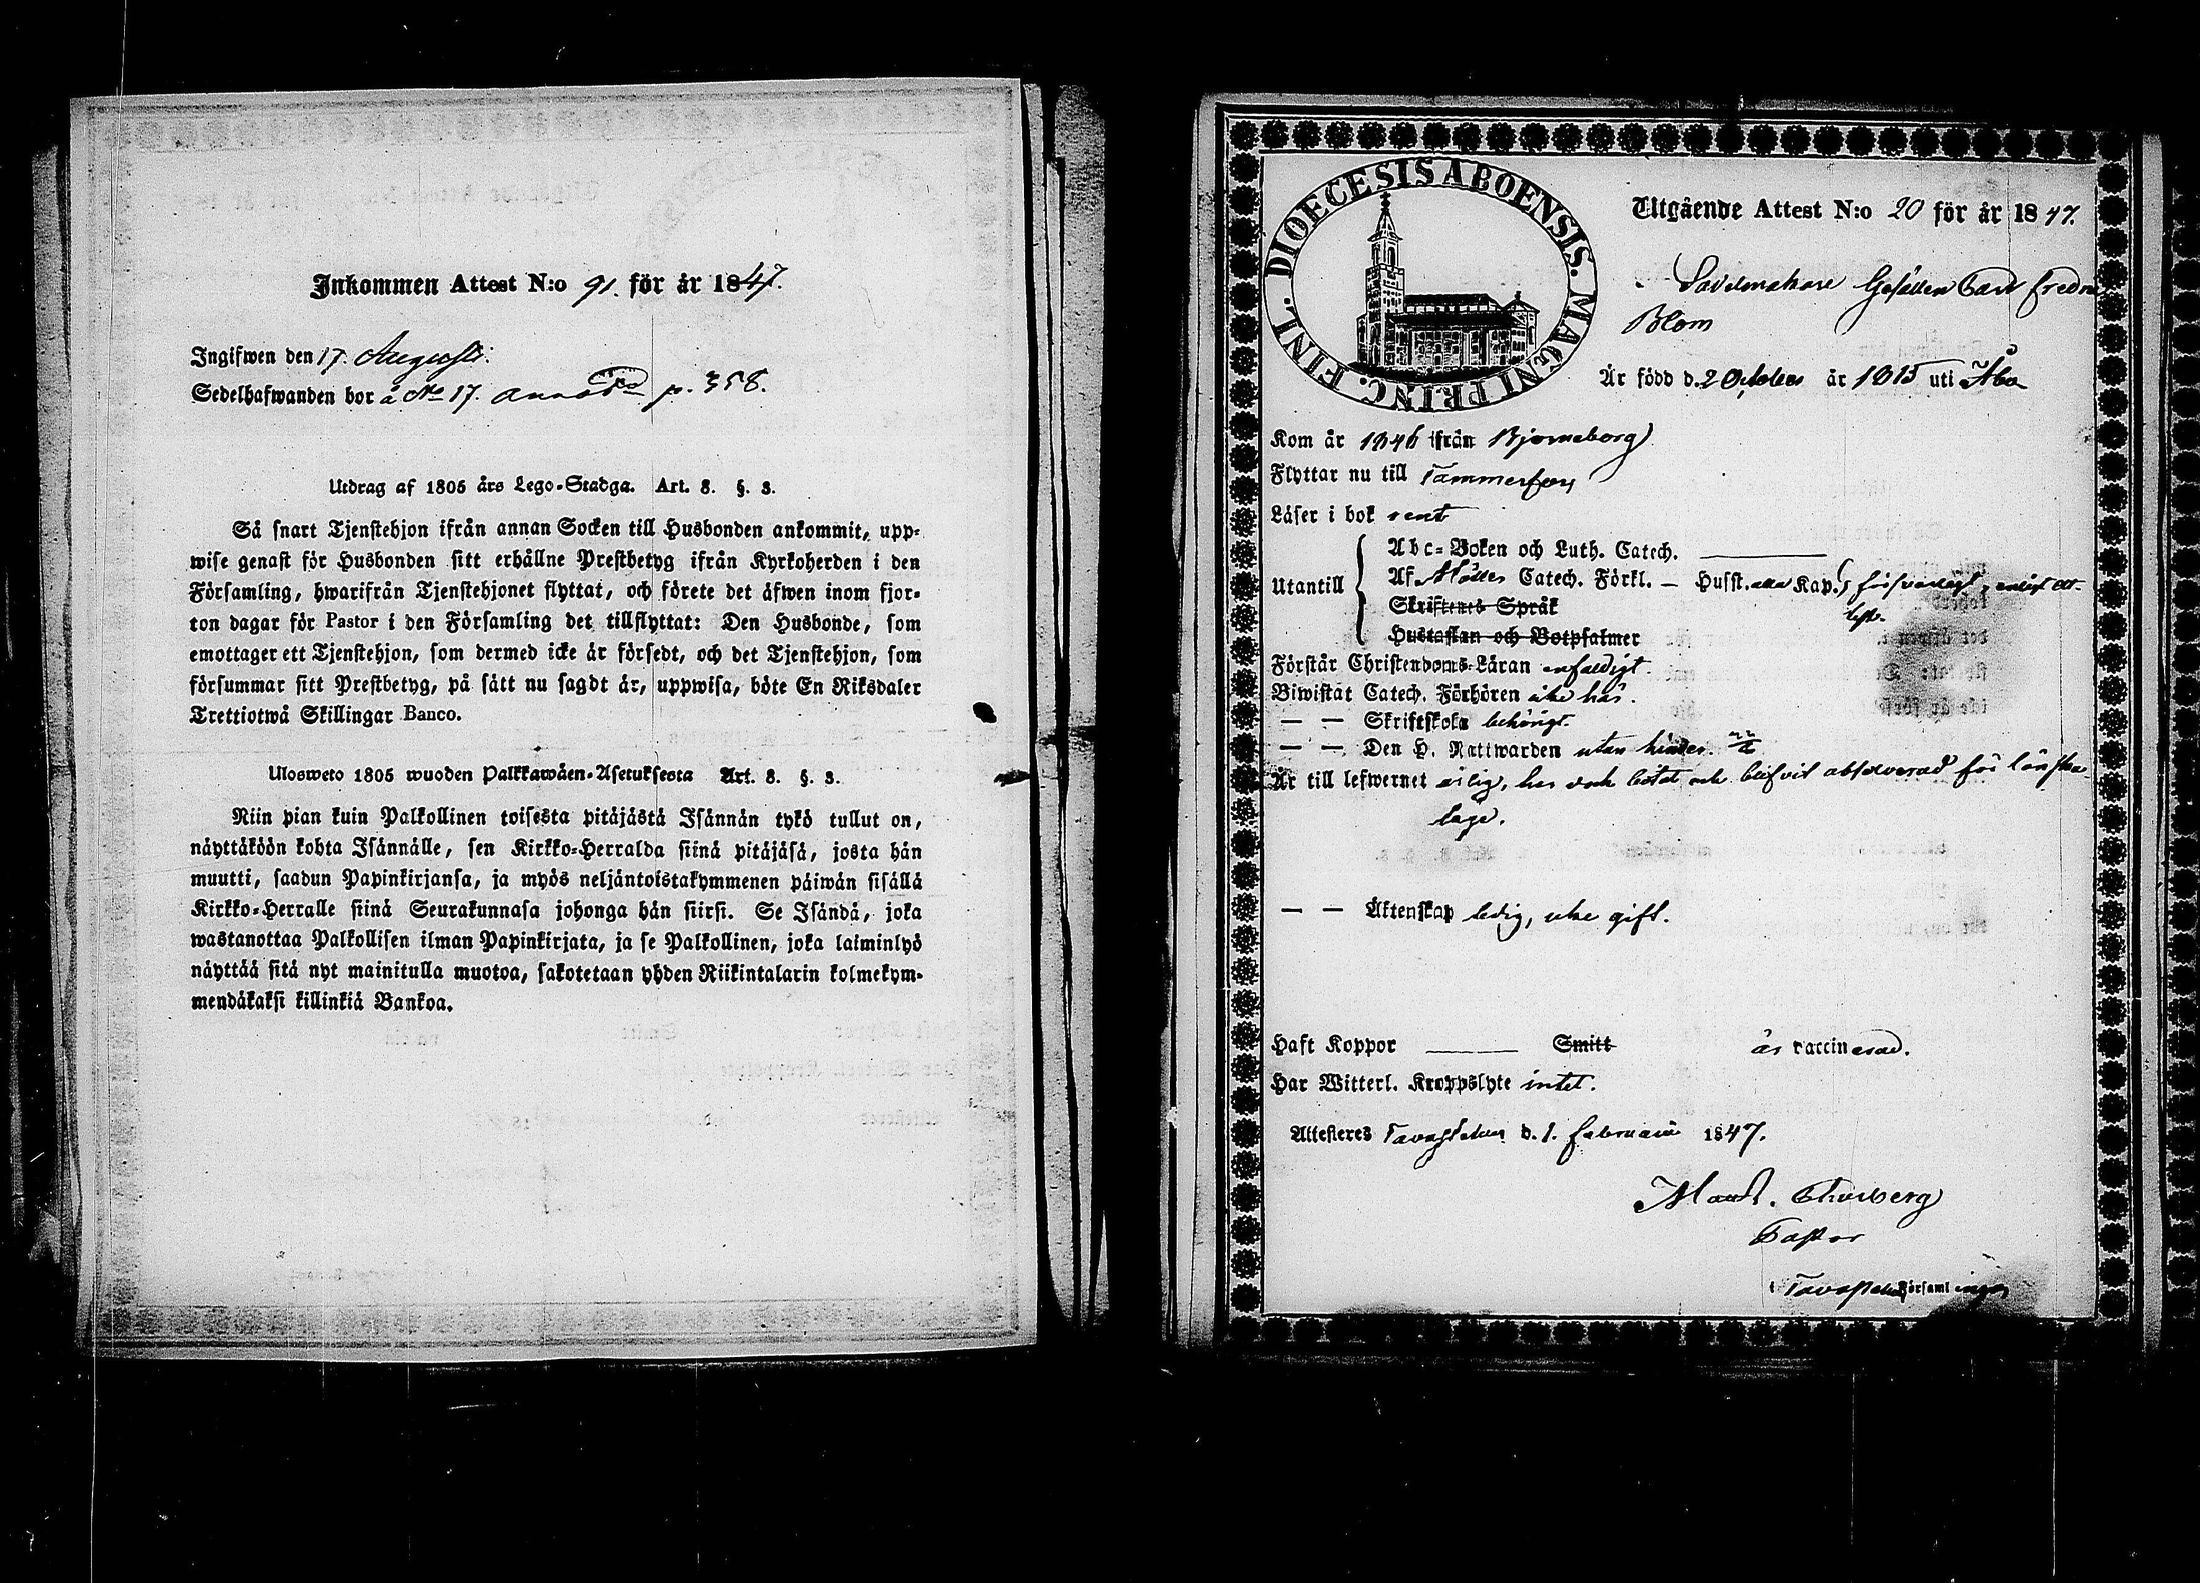 Inkommen Attest N:o 91. för år 1847.
Ingifwen den 17. Augusti.
Sedelhafwanden bor å No 17. p. 358.
Utdrag af 1805 års Lego-Stadga. Art. 8. §. 3.
Så snart Tjenstehjon ifrån annan Socken till Husbonden ankommit, upp-
wise genast för Husbonden sitt erhållne Prestbetyg ifrån Kyrkoherden i den
Församling, hwarifrån Tjenstehjonet flyttat, och förete det äfwen inom fjor-
ton dagar för Pastor i den Församling det tillflyttat: Den Husbonde, som
emottager ett Tjenstehjon, som dermed icke är försedt, och det Tjenstehjon, som
försummar sitt Prestbetyg, på sätt nu sagdt är, uppwisa, böte En Riksdaler
Trettiotwå Skillingar Banco.
Ulosweto 1805 wuoden Palkkawäen-Asetuksesta Art. 8. §. 3.
Niin pian kuin Palkollinen toisesta pitäjästä Isännän tykö tullut on,
näyttäköön kohta Isännälle, sen Kirkko-Herralda siinä pitäjäsä, josta hän
muutti, saadun Papinkirjansa, ja myös neljäntoistakymmenen päiwän sisällä
Kirkko-Herralle siinä Seurakunnasa johonga hän siirsi. Se Isändä, joka
wastanottaa Palkollisen ilman Papinkirjata, ja se Palkollinen, joka laiminlyö
näyttää sitä nyt mainitulla muotoa, sakotetaan yhden Riikintalarin kolmekym-
mendäkaksi killinkiä Bankoa.
DIOECESIS ABOENSIS. MAGNI PRINC. FINL.
Utgående Attest N:o 20 för år 1847.
Sadelmakare Gesällen Carl Fredric
Blom
Är född d. 2 October år 1815 uti Åbo
Kom år 1846 ifrån Björneborg
Flyttar nu till Tammerfors
Läser i bok rent
Utantill
Abc-Boken och Luth. Catech.
Af Möllers Catech. Förkl. — Husst. alla Kap. försvarligt, enligt att-
test.
Skriftenes Språk
Hustaflan och Botpsalmer
Förstår Christendoms-Läran enfaldigt.
Biwistat Catech. Förhören icke här.
— — Skriftskola behörigt.
— — Den H. Nattwarden utan hinder.
Är till lefwernet ärlig, har dock bötat och blifvit absolverad för lönska-
läge.
— — Äktenskap ledig, icke gift.
Haft Koppor ——— Smitt är vaccinerad.
Har Witterl. Kroppslyte intet.
Attesteres Tavastehus d. 1. Februarii 1847.
Pastor
i Tavastehus Församlingar